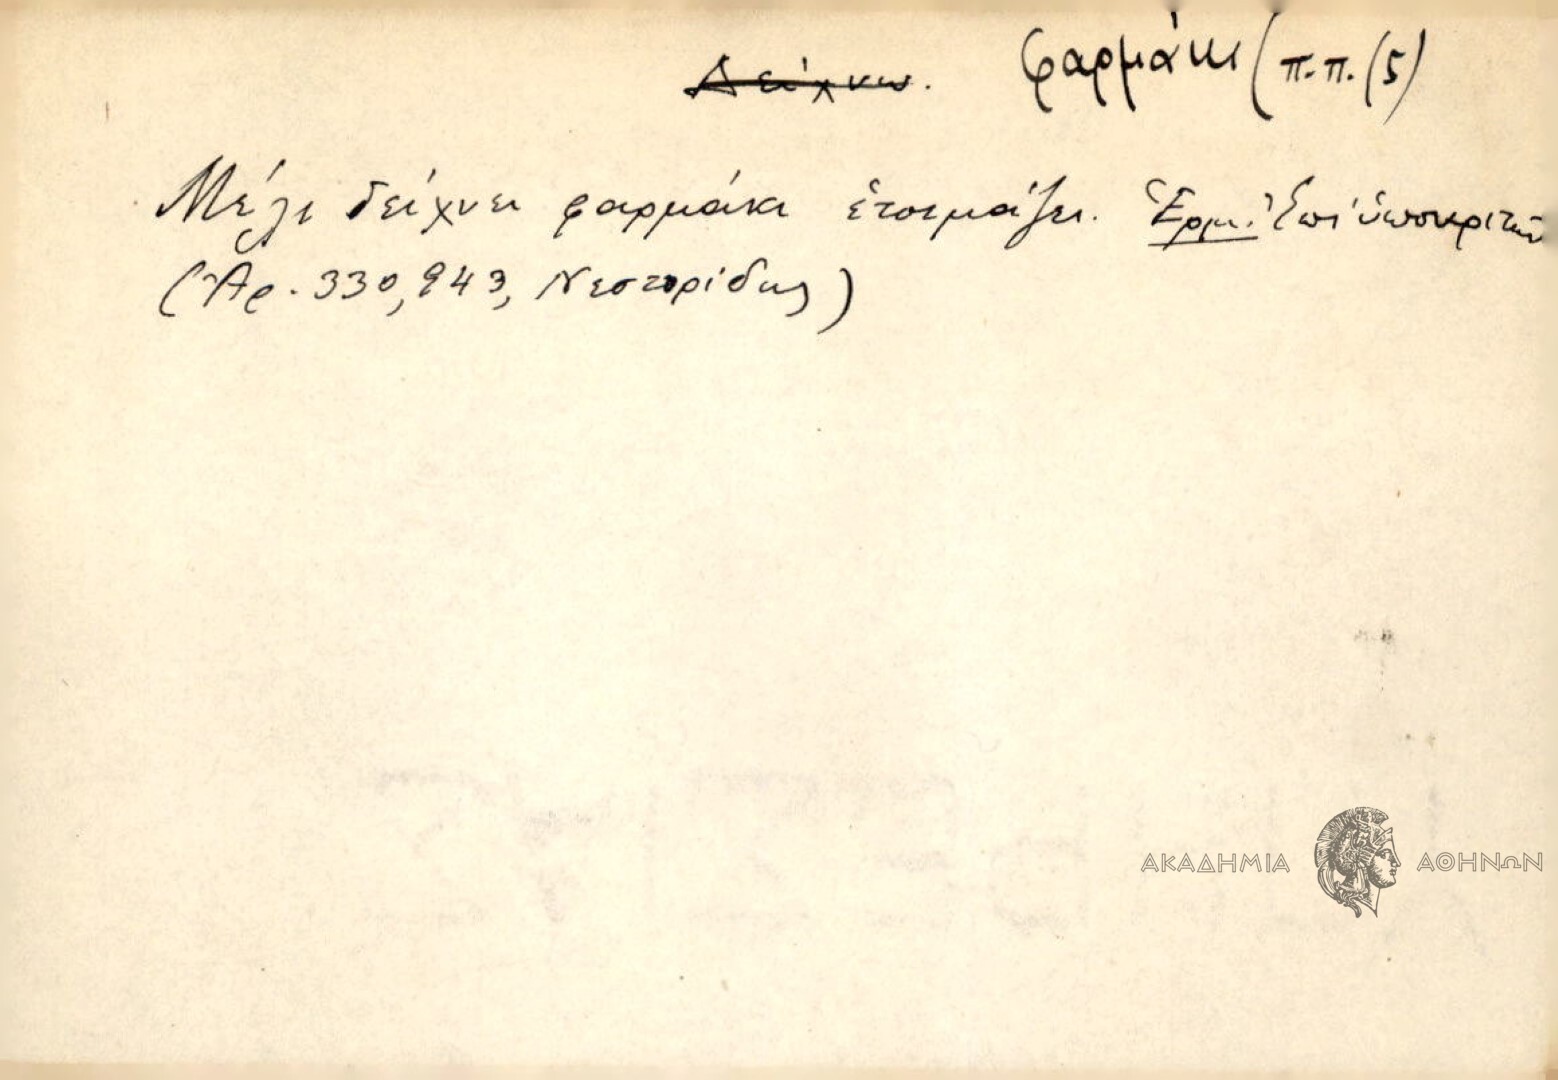 Δείχνω. φαρμάκι (π.π. (5)
Μέλι δείχνει φαρμάκι ἑτοιμάζει. Ἑρμ. Ἐπί ὑποκριτῶν
(Ἀρ. 330, 943, Νεστορίδης)
ΑΚΑΔΗΜΙΑ ΑΘΗΝΩΝ